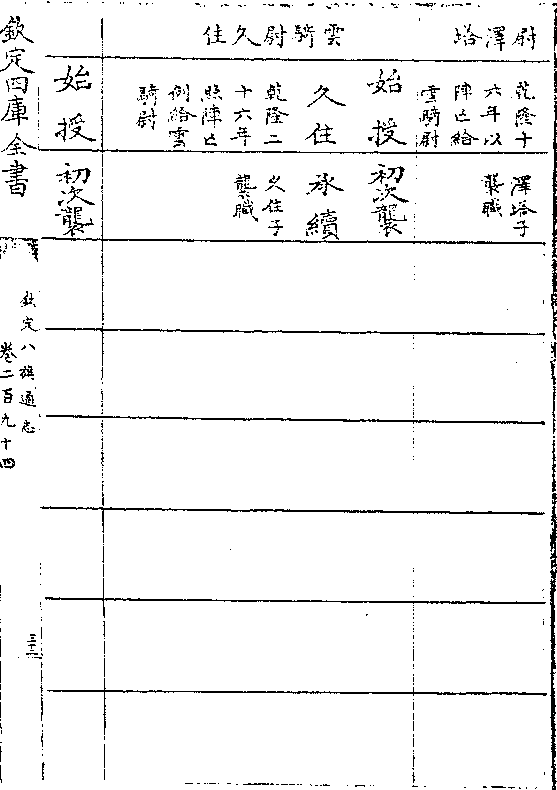 尉澤塔
乾隆十
六年以
陣亡給
雲騎尉
澤塔子
襲職
始授
初次襲
雲騎尉久住
久住
承續
乾隆二
十六年
照陣亡
例給雲
騎尉
久住子
襲職
始授
初次襲
欽定四庫全書
欽定八旗通志
卷二百九十四
三十二